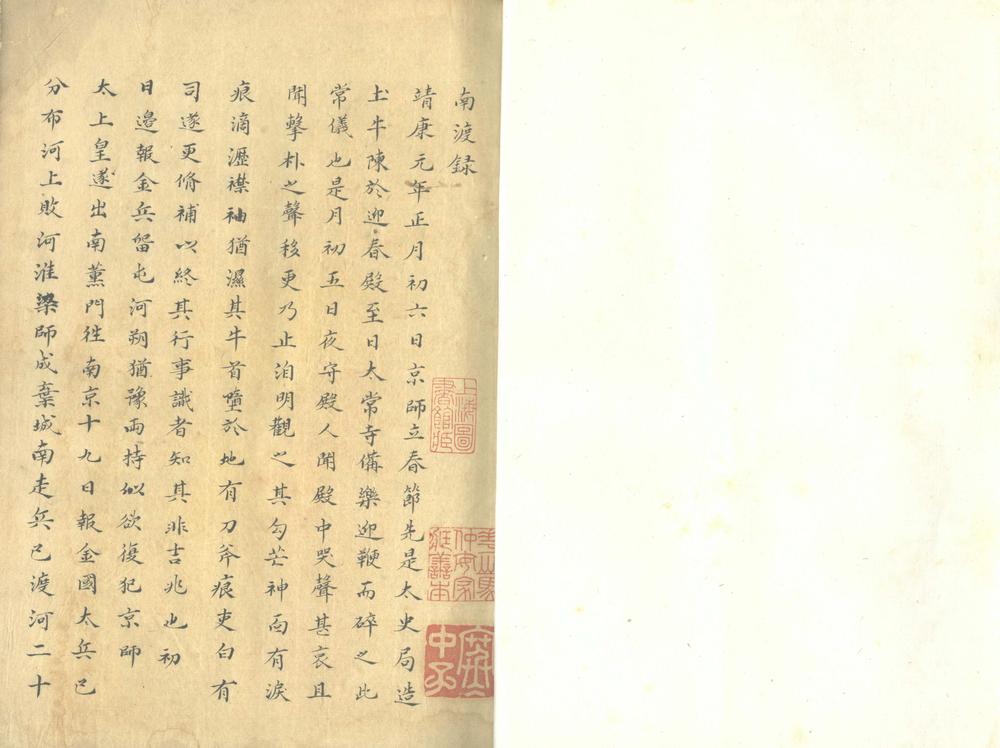 南渡録
靖康元年正月初六日京師立春節先是太史局造
土牛陳於迎春殿至日太常寺備樂迎鞭而碎之此
常儀也是月初五日夜守殿人聞殿中哭聲甚哀且
聞擊朴之聲移更乃止洎明觀之其勾芒神面有淚
痕滴瀝襟袖猶濕其牛首墮於地有刀斧痕吏白有
司遂更脩補以終其行事識者知其非吉兆也初
日邊報金兵留屯河朔猶豫兩持似欲復犯京師
太上皇遂出南薰門徃南京十九日報金國太兵已
分布河上敗河淮梁師成棄城南走兵已渡河二十
上海圖書館臧